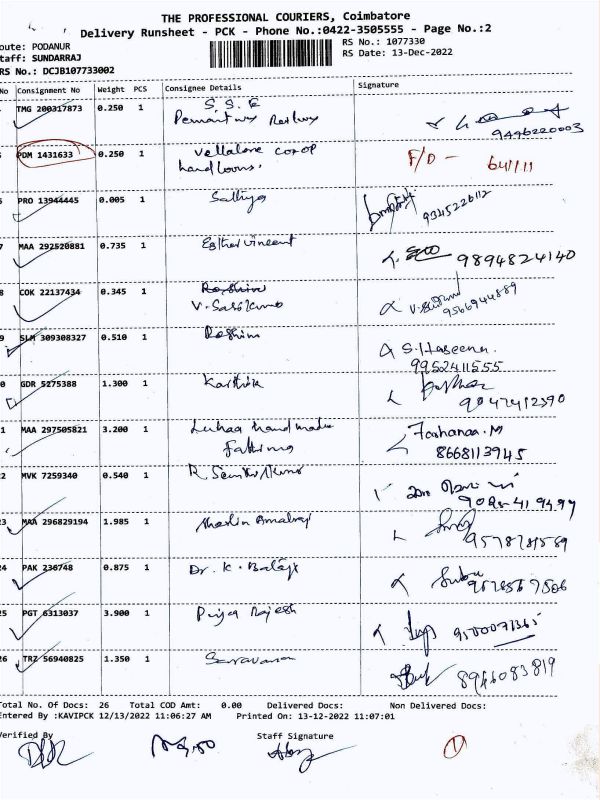 THE PROFESSIONAL COURIERS, Coimbatore
Delivery Runsheet - PCK - Phone No.:0422-3505555 - Page No.:2
oute: PODANUR
RS No.: 1077330
taff: SUNDARRAJ
RS Date: 13-Dec-2022
RS No.: DCJB107733002
No Consignment No Weight PCS Consignee Details Signature
TMG 200317873 0.250 1 S.S.E
Railway
9496220003
PDM 1431633 0.250 1 Vellalore co.op F/D -
handlooms.
PRO 13944445 0.005 1 Sathya 9345226112
7 MAA 292520881 0.735 1 Esther Vincent 9894824140
8 COK 22137434 0.345 1 Roshini
V. Sasikumar 9566944889
9 SLM 309308327 0.510 1 Roshini S. Haseena.
9952411555
0 GDR 5275388 1.300 1 Karthik 9047412390
1 MAA 297505821 3.200 1 hand made Farhanaa.M
Fathima 8668113945
2 MVK 7259340 0.540 1 R. Senthil Kumar
23 MAA 296829194 1.985 1 Amalraj
24 PAK 236748 0.875 1 Dr. K. Balaji
25 PGT 6313037 3.900 1 Priya Rajesh
26 TRZ 56940825 1.350 1 Saravanan 8946083819
Total No. Of Docs: 26 Total COD Amt: 0.00 Delivered Docs: Non Delivered Docs:
Entered By :KAVIPCK 12/13/2022 11:06:27 AM Printed On: 13-12-2022 11:07:01
Verified By Staff Signature
1